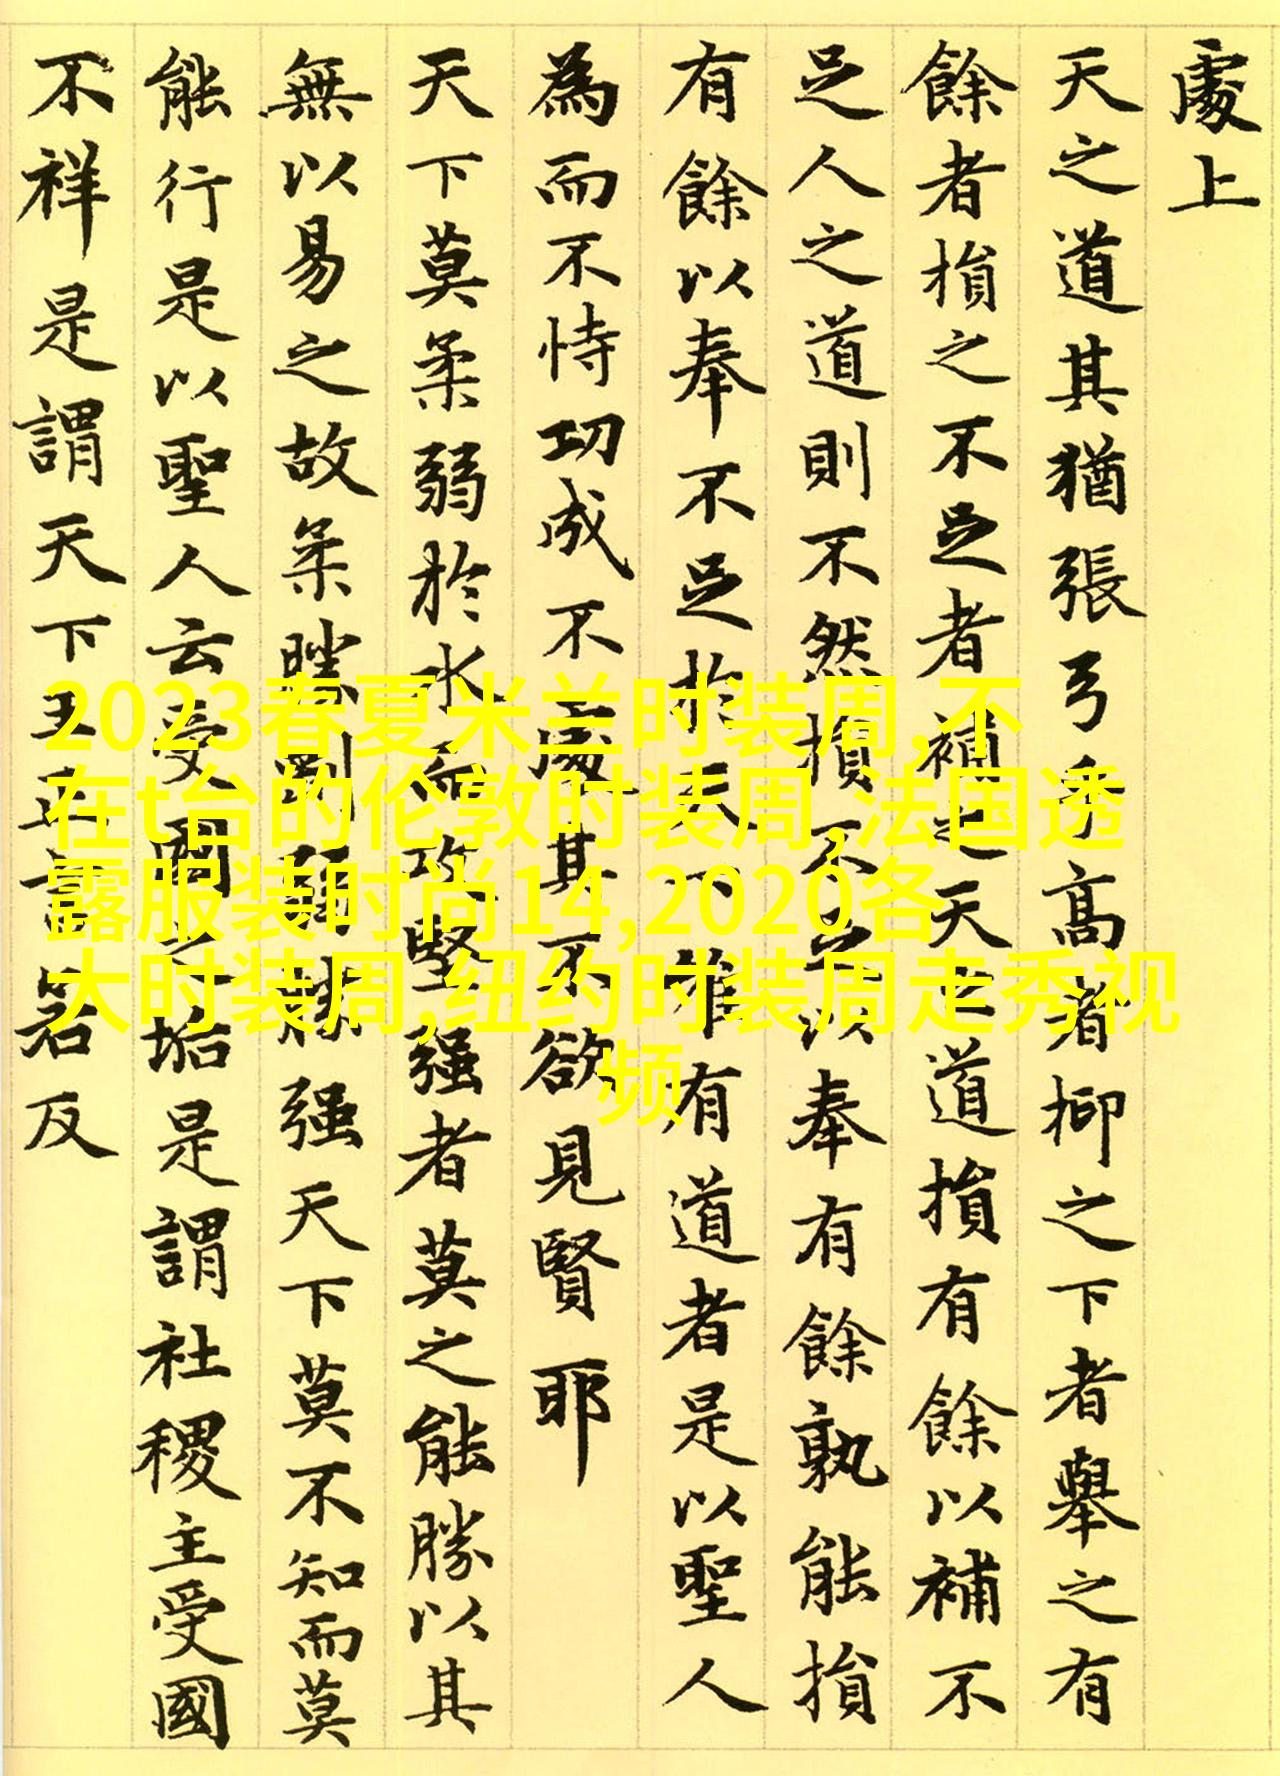 處上
天之道其猶張弓乎高者抑之下者舉之有
餘者損之不足者補之天之道損有餘以補不
足人之道則不然損不足以奉有餘孰能損
有餘以奉不足於天下唯有道者是以聖人
為而不恃功成不處其不欲見賢耶
天下莫柔弱於水而攻堅强者莫之能勝以其
無以易之故柔勝剛弱勝强天下莫不知而莫
能行是以聖人云受國之垢是謂社稷主受國
不祥是謂天下王正言若反
2023春夏米兰时装周,不
在t台的伦敦时装周,法国透
露服装时尚14,2020各
大时装周,纽约时装周走秀视
频